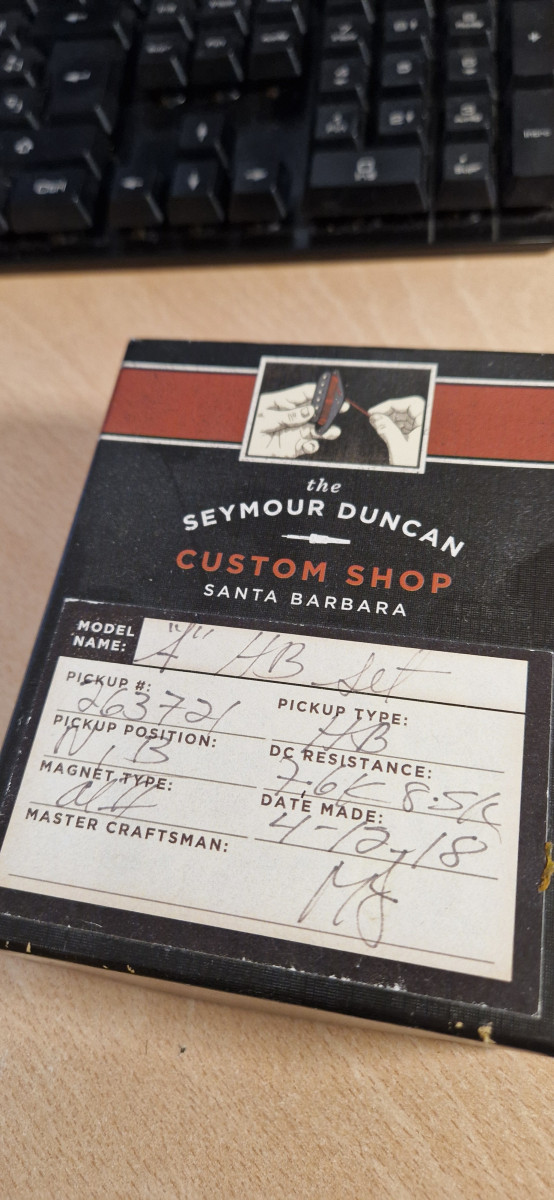 the
SEYMOUR DUNCAN
CUSTOM SHOP
SANTA BARBARA
MODEL NAME: HB Set
PICKUP #: 263721
PICKUP TYPE: HB
PICKUP POSITION: N, B
DC RESISTANCE: 7.6K 8.5K
MAGNET TYPE:
DATE MADE: 4-12-18
MASTER CRAFTSMAN: MJ